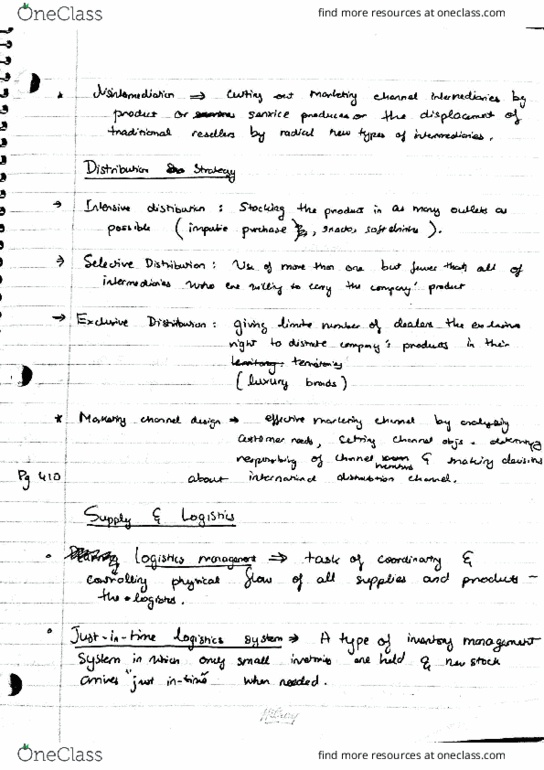 OneClass
find more resources at oneclass.com
Disintermediation ⇒ Cutting out marketing channel intermediaries by
product or service produces or the displacement of
traditional resellers by radial new types of intermediaries.
Distribution Strategy
→ Intensive distribution : Stocking the product in as many outlets as
possible ( impulse purchase, snacks, soft drinks ).
→ Selective Distribution : Use of more than one but fewer than all of
intermediaries who are willing to carry the company' product
→ Exclusive Distribution : giving limite number of dealers the exclusive
right to distrute company's products in their
territories
( luxury brands )
* Marketing channel design → effective marketing channel by analysing
customer needs, setting channel objs. determining
of channel members & making decisions
Pg 410 about international distribution channel.
Supply & Logistics
• Logistics management ⇒ task of coordinating &
controlling physical flow of all supplies and products -
the logistics.
• Just-in-time logistics system ⇒ A type of inventory management
system in which only small are held & new stock
arrives "just in-time" when needed.
OneClass
find more resources at oneclass.com